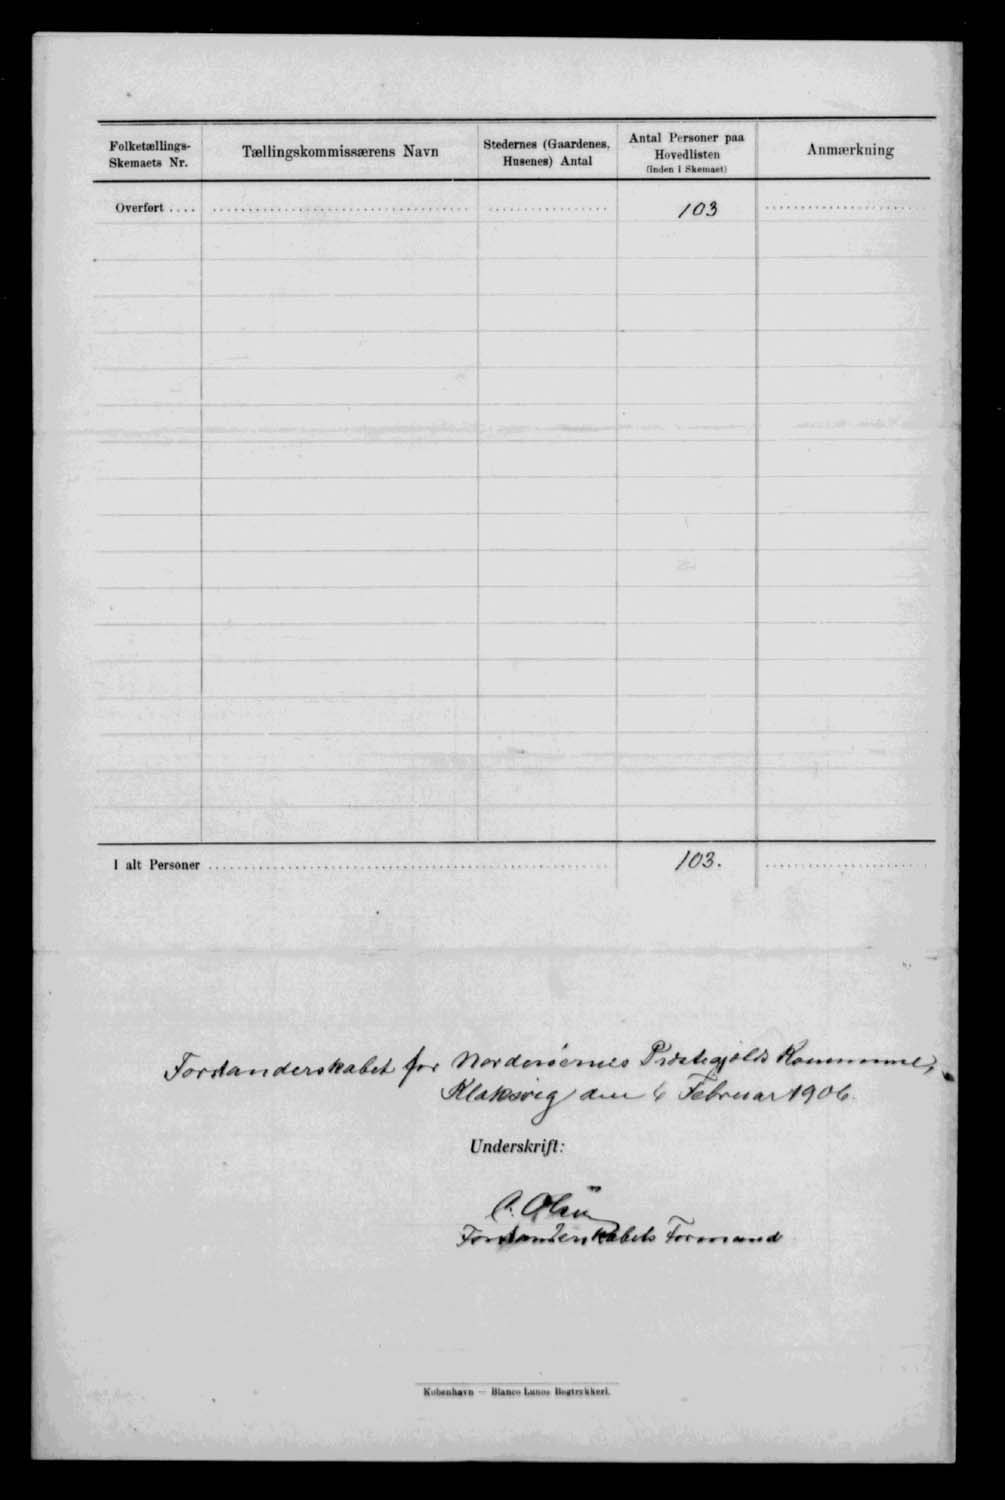 Folketællings-
Skemaets Nr.
Tællingskommissærens Navn
Stedernes (Gaardenes,
Husenes) Antal
Antal Personer paa
Hovedlisten
(inden i Skemaet)
Anmærkning
Overført .... 103
I alt Personer 103.
Forstanderskabet for Norderøernes Præstegjælds Kommune,
Klaksvig den 6 Februar 1906.
Underskrift:
Forstanderskabets Formand
København — Bianco Lunos Bogtrykkeri.